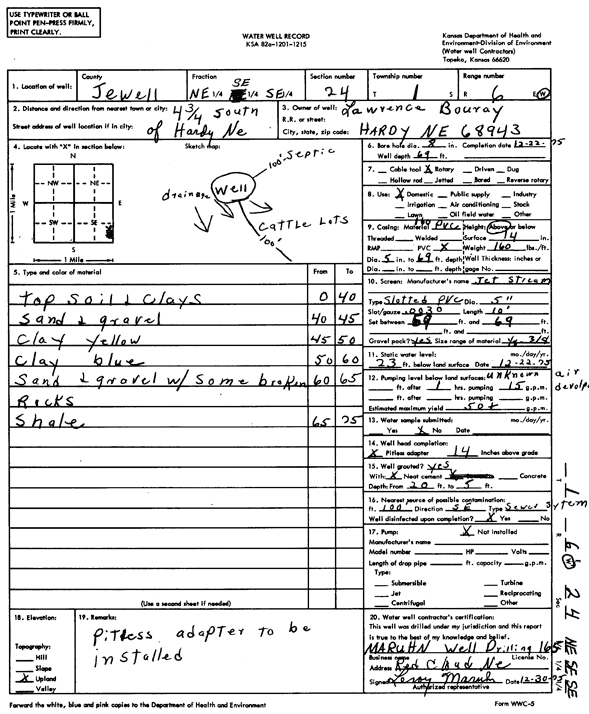 USE TYPEWRITER OR BALL
POINT PEN-PRESS FIRMLY,
PRINT CLEARLY.
WATER WELL RECORD
KSA 82a-1201-1215
Kansas Department of Health and
Environment-Division of Environment
(Water well Contractors)
Topeka, Kansas 66620
1. Location of well: County Jewell Fraction NE 1/4 SE 1/4 SE 1/4 Section number 24 Township number T 1 S Range number R 6 E W
2. Distance and direction from nearest town or city: 4 3/4 South
Street address of well location if in city: of Hardy Ne
3. Owner of well: Lawrence Bouray
R.R. or street:
City, state, zip code: HARDY NE 68943
4. Locate with "X" in section below: Sketch map:
N
NW NE
W E
SW SE
S
1 Mile
1 Mile
100' Septic
Well
drainage
Cattle Lots
100'
6. Bore hole dia. 8 in. Completion date 12-22-75
Well depth 69 ft.
7. Cable tool X Rotary Driven Dug
Hollow rod Jetted Bored Reverse rotary
8. Use: X Domestic Public supply Industry
Irrigation Air conditioning Stock
Lawn Oil field water Other
9. Casing: Material PVC Height: Above or below
Threaded Welded Surface 14 in.
RMP PVC X Weight 160 lbs./ft.
Dia. 5 in. to 69 ft. depth Wall Thickness: inches or
Dia. in. to ft. depth gage No.
5. Type and color of material From To
Top Soil & Clays 0 40
Sand & gravel 40 45
Clay yellow 45 50
Clay blue 50 60
Sand & gravel w/ Some broken 60 65
Rocks
Shale 65 75
(Use a second sheet if needed)
10. Screen: Manufacturer's name Jet Stream
Type Slotted PVC Dia. 5"
Slot/gauze .0030 Length 10'
Set between 59 ft. and 69 ft.
ft. and ft.
Gravel pack? yes Size range of material 3/8
11. Static water level: mo./day/yr.
23 ft. below land surface Date 12-22-75
12. Pumping level below land surface: unknown
ft. after 1 hrs. pumping 15 g.p.m.
ft. after hrs. pumping g.p.m.
Estimated maximum yield 50+ g.p.m.
air
13. Water sample submitted: mo./day/yr.
Yes X No Date
14. Well head completion:
X Pitless adapter 14 Inches above grade
15. Well grouted? yes
With: X Neat cement Concrete
Depth: From 20 ft. to 5 ft.
16. Nearest source of possible contamination:
ft. 100 Direction SE Type Sewer System
Well disinfected upon completion? X Yes No
17. Pump: X Not installed
Manufacturer's name
Model number HP Volts
Length of drop pipe ft. capacity g.p.m.
Type:
Submersible Turbine
Jet Reciprocating
Centrifugal Other
18. Elevation:
Topography:
Hill
Slope
X Upland
Valley
19. Remarks:
Pitless adapter to be
installed
20. Water well contractor's certification:
This well was drilled under my jurisdiction and this report
is true to the best of my knowledge and belief.
MARUHN Well Drilling 165
Business name License No.
Address Red Cloud Ne
Signed Leroy Maruhn Date 12-30-75
Authorized representative
T 1 R 6 W Sec 24 NE SE SE
1/4 1/4 1/4
Forward the white, blue and pink copies to the Department of Health and Environment
Form WWC-5